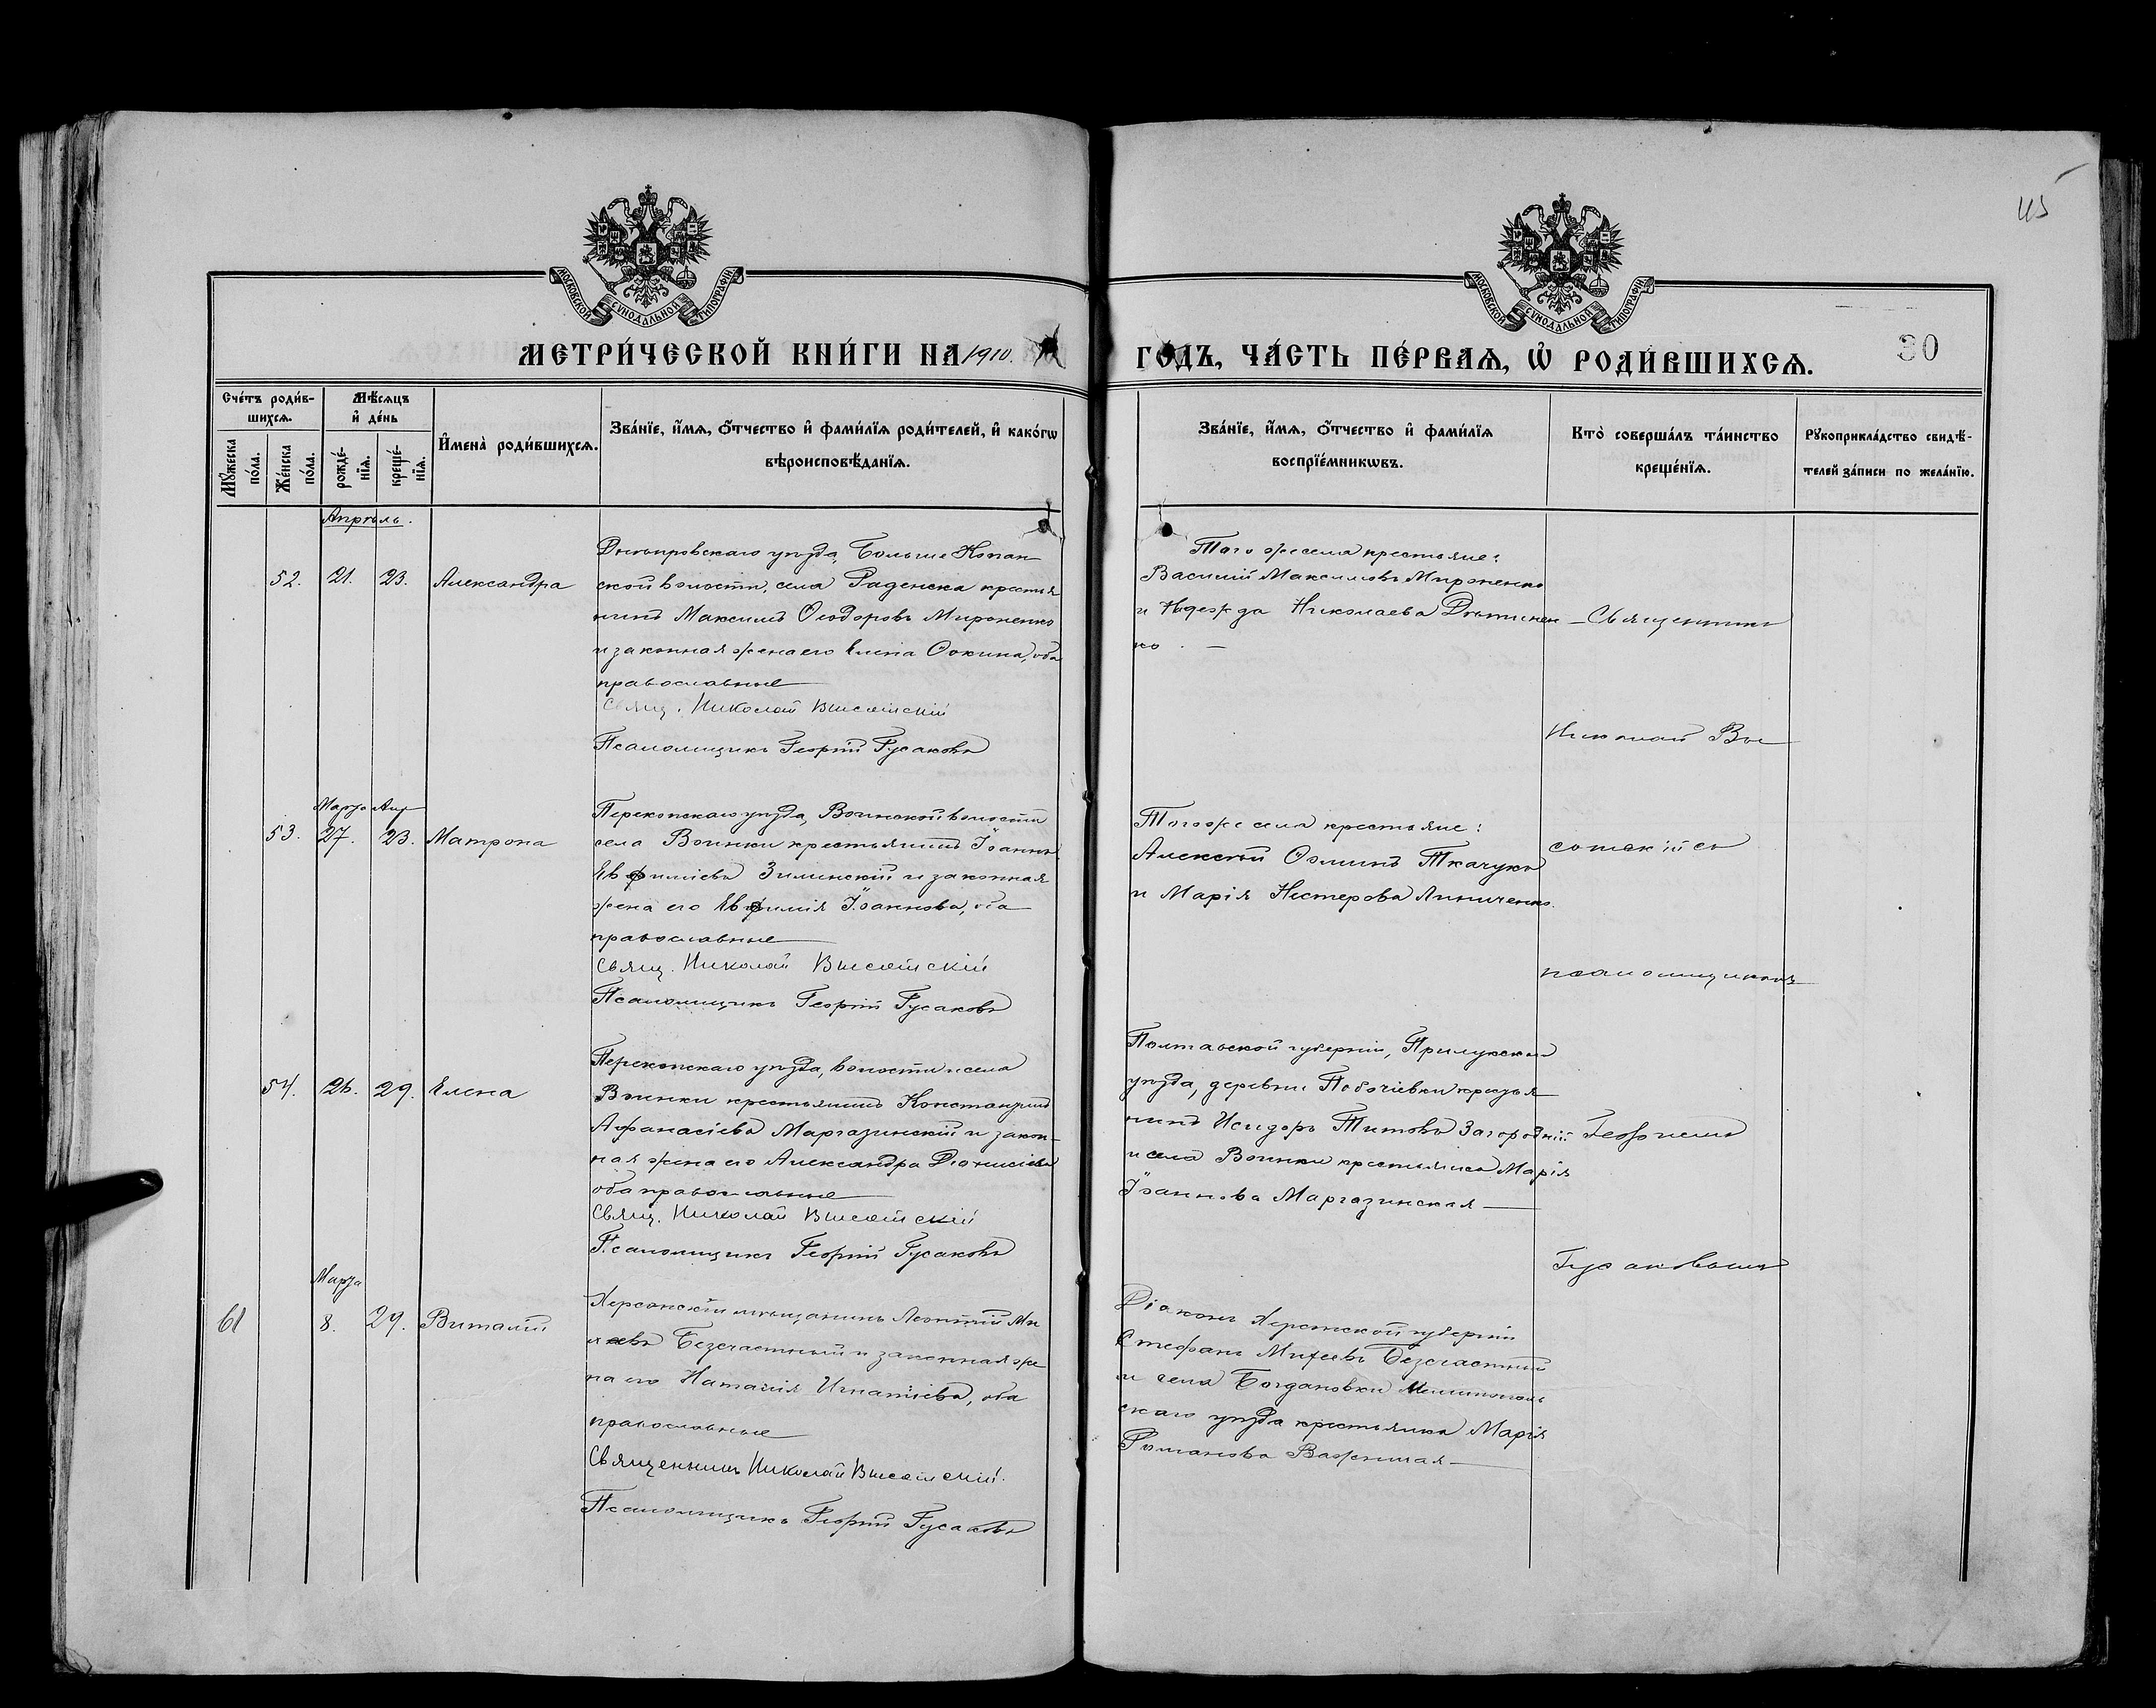 45
МОСКОВСКОЙ СѴНОДАЛЬНОЙ ТИПОГРАФІИ
МОСКОВСКОЙ СѴНОДАЛЬНОЙ ТИПОГРАФІИ
МЕТРИ́ЧЕСКОЙ КНИ́ГИ НА 1910.
ГО́ДЪ, ЧА́СТЬ ПЕ́РВАѦ, Ѡ҆ РОДИ́ВШИХСѦ.
30
Сче́тъ роди́в-
шихсѧ.
Мѣ́сѧцъ
и҆ де́нь
Мꙋ́жеска по́ла.
Же́нска по́ла.
рожде́-
нїѧ.
креще́-
нїѧ.
И҆мена̀ роди́вшихсѧ.
Зва́нїе, и҆́мѧ, ѻ҆́тчество и҆ фами́лїѧ роди́телей, и҆ како́гѡ
вѣроисповѣ́данїѧ.
Зва́нїе, и҆́мѧ, ѻ҆́тчество и҆ фами́лїѧ
воспрїе́мникѡвъ.
Кто̀ соверша́лъ та́инство
креще́нїѧ.
Рꙋкоприкла́дство свидѣ́-
телей за́писи по жела́нїю.
Апрѣль.
52. 21. 23. Александра
Днѣпровскаго уѣзда, Больше Копан
ской волости, села Раденска крестья
нинъ Максимъ Ѳеодоровъ Мироненко
и законная жена его Елена Ѳокина, оба
православные
Свящ. Николай Высотскій
Псаломщикъ Георгій Гусаковъ
Того же села крестьяне:
Василій Максимовъ Мироненко
и Надежда Николаева
ко. —
Священник
Николай Вы
Марта Апр
53. 27. 23. Матрона
Перекопскаго уѣзда, Воинской волости
села Воинки крестьянинъ Іоаннъ
Евфиміевъ Зилинскій и законная
жена его Евфимія Іоаннова, оба
православные
Свящ. Николай Высотскій
Псаломщикъ Георгій Гусаковъ
Того же села крестьяне:
Алексѣй Ѳоминъ Ткачукъ
и Марія Нестерова Линиченко.
сотскій съ
псаломщикомъ
54. 26. 29. Елена
Перекопскаго уѣзда, волости и села
Воинки крестьянинъ Константинъ
Аѳанасіевъ Маргазинскій и закон-
ная жена его Александра Діонисіева
оба православные
Свящ. Николай Высотскій
Псаломщикъ Георгій Гусаковъ
Полтавской губерніи, Прилукскаго
уѣзда, деревни крестья
нинъ Исидоръ Титовъ Загородній
и села Воинки крестьянка Марія
Іоаннова Маргазинская —
Георгіемъ
Гусаковымъ
Марта
61 8. 29. Виталій
Херсонскій мѣщанинъ Леонтій Ми
Безчастный и законная же
на его Наталія Игнатіева, оба
православные
Священникъ Николай Высотскій.
Псаломщикъ Георгій Гусаковъ
Діаконъ Херсонской губерніи
Стефанъ Михеевъ Безчастный
и села Богдановки Мелитополь
скаго уѣзда крестьянка Марія
Романова Важенная —